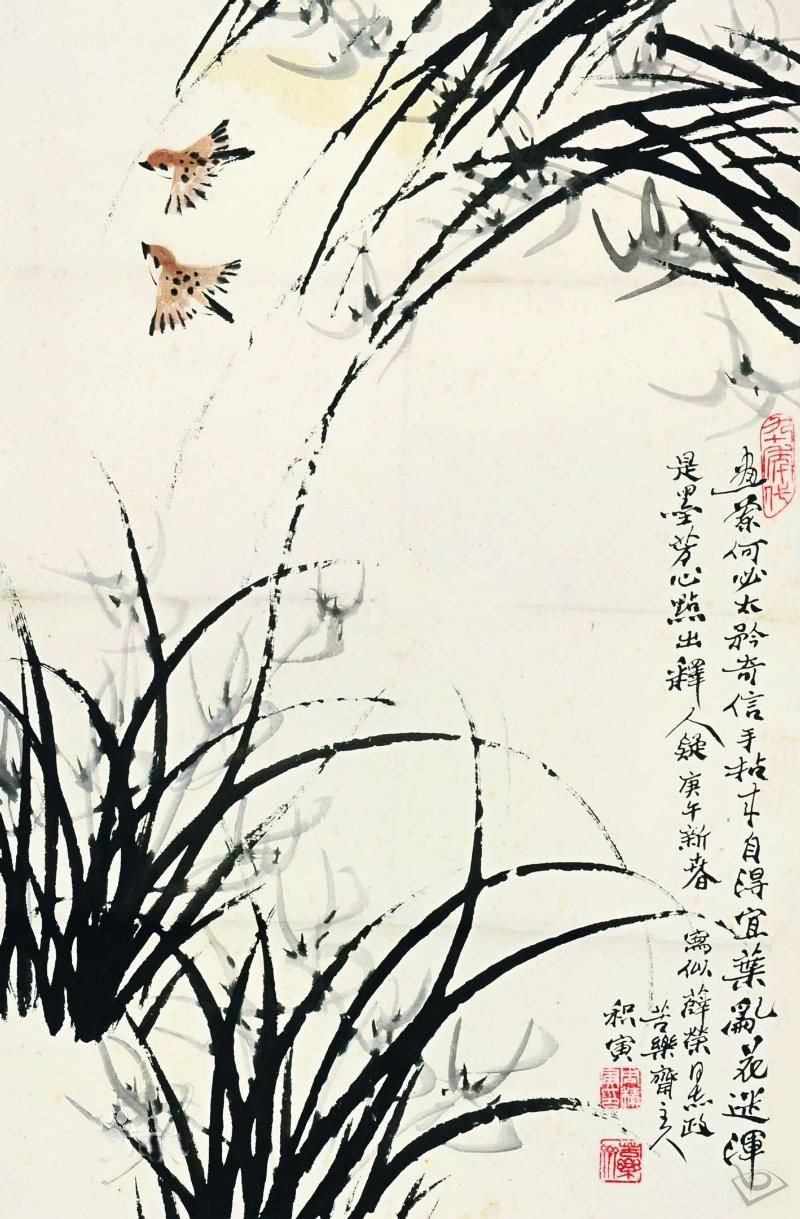 画兰何必太矜奇信手拈来自得宜葉亂花迷渾
是墨芳心點出釋人疑庚午新春
寫似薛榮同志政
苦樂齋主人
积寅